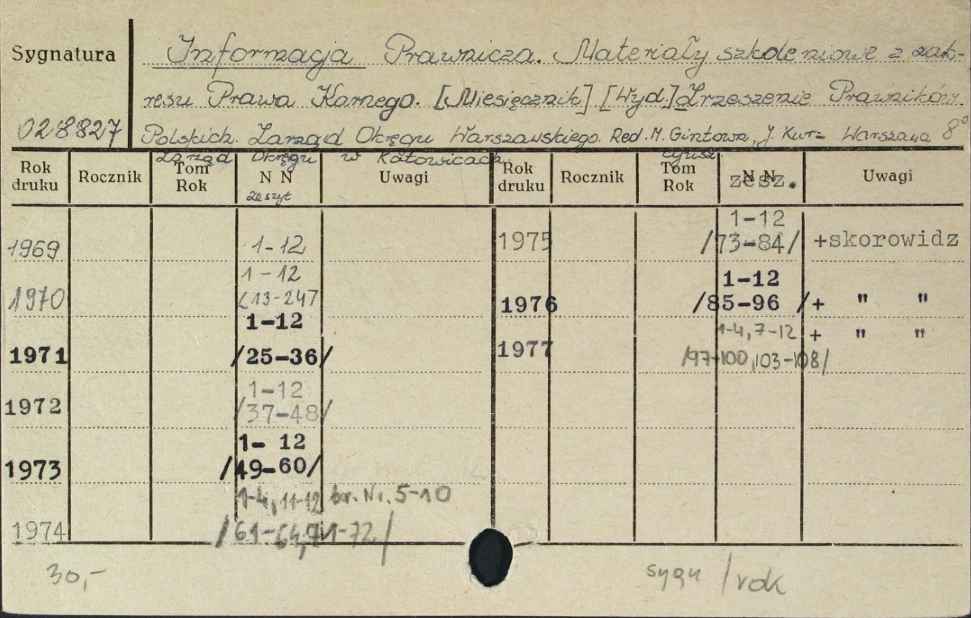 Sygnatura
Informacja Prawnicza. Materiały szkoleniowe z zak-
resu Prawa Karnego. [Miesięcznik] [Wyd.] Zrzeszenie Prawników
028827
Polskich. Zarząd Okręgu Warszawskiego. Red. M. Gintowa, J. Kur= Warszawa 8°
Zarząd Okręgu w Katowicach
Rok druku Rocznik Tom Rok N N zeszyt Uwagi Rok druku Rocznik Tom Rok N N zesz. Uwagi
1969 1-12
1970 1-12
/13-24/
1971 1-12
/25-36/
1972 1-12
/37-48/
1973 1- 12
/49-60/
1974 1-4, 11-12 br. Nr. 5-10
/61-64, 71-72/
1975 1-12
/73-84/ +skorowidz
1976 1-12
/85-96 /+ " "
1977 1-4, 7-12 + " "
/97-100, 103-108/
30,-
sygn /rok